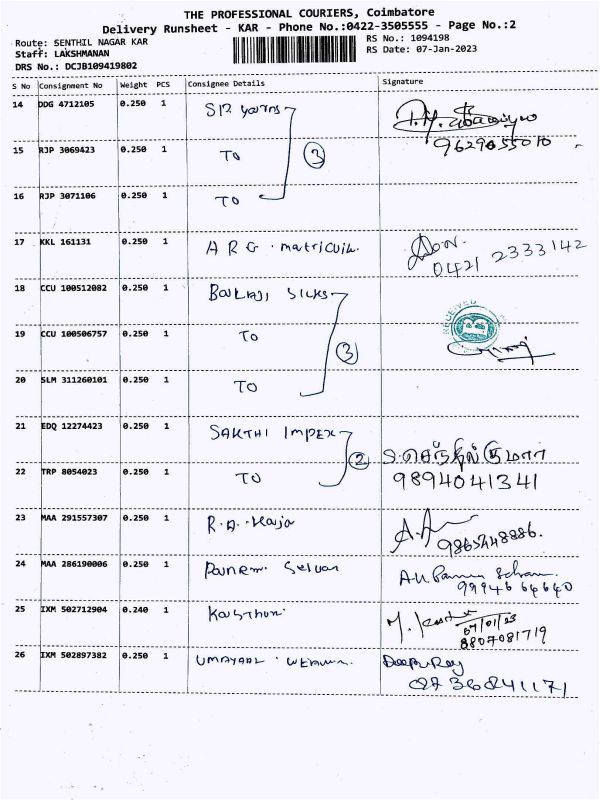 THE PROFESSIONAL COURIERS, Coimbatore
Delivery Runsheet - KAR - Phone No.:0422-3505555 - Page No.:2
Route: SENTHIL NAGAR KAR
RS No.: 1094198
Staff: LAKSHMANAN
RS Date: 07-Jan-2023
DRS No.: DCJB109419802
S No Consignment No Weight PCS Consignee Details Signature
14 DDG 4712105 0.250 1 SP. yarns
15 RJP 3069423 0.250 1 TO 3 9629055010
16 RJP 3071106 0.250 1 TO
17 KKL 161131 0.250 1 A R G . matriculn. 0421 2333142
18 CCU 100512082 0.250 1 Balaji silks
RECEIVED
19 CCU 100506757 0.250 1 TO 3
20 SLM 311260101 0.250 1 TO
21 EDQ 12274423 0.250 1 SAKTHI IMPEX 2 S. செந்தில்குமார்
22 TRP 8054023 0.250 1 TO 9894041341
23 MAA 291557307 0.250 1 R.A. Raja 9865448886.
24 MAA 286190006 0.250 1 Selvan 9994664640
25 IXM 502712904 0.240 1 Kasthuri 07/01/23
8807081719
26 IXM 502897382 0.250 1 UMAYAAL Deepu Roy
8736841171